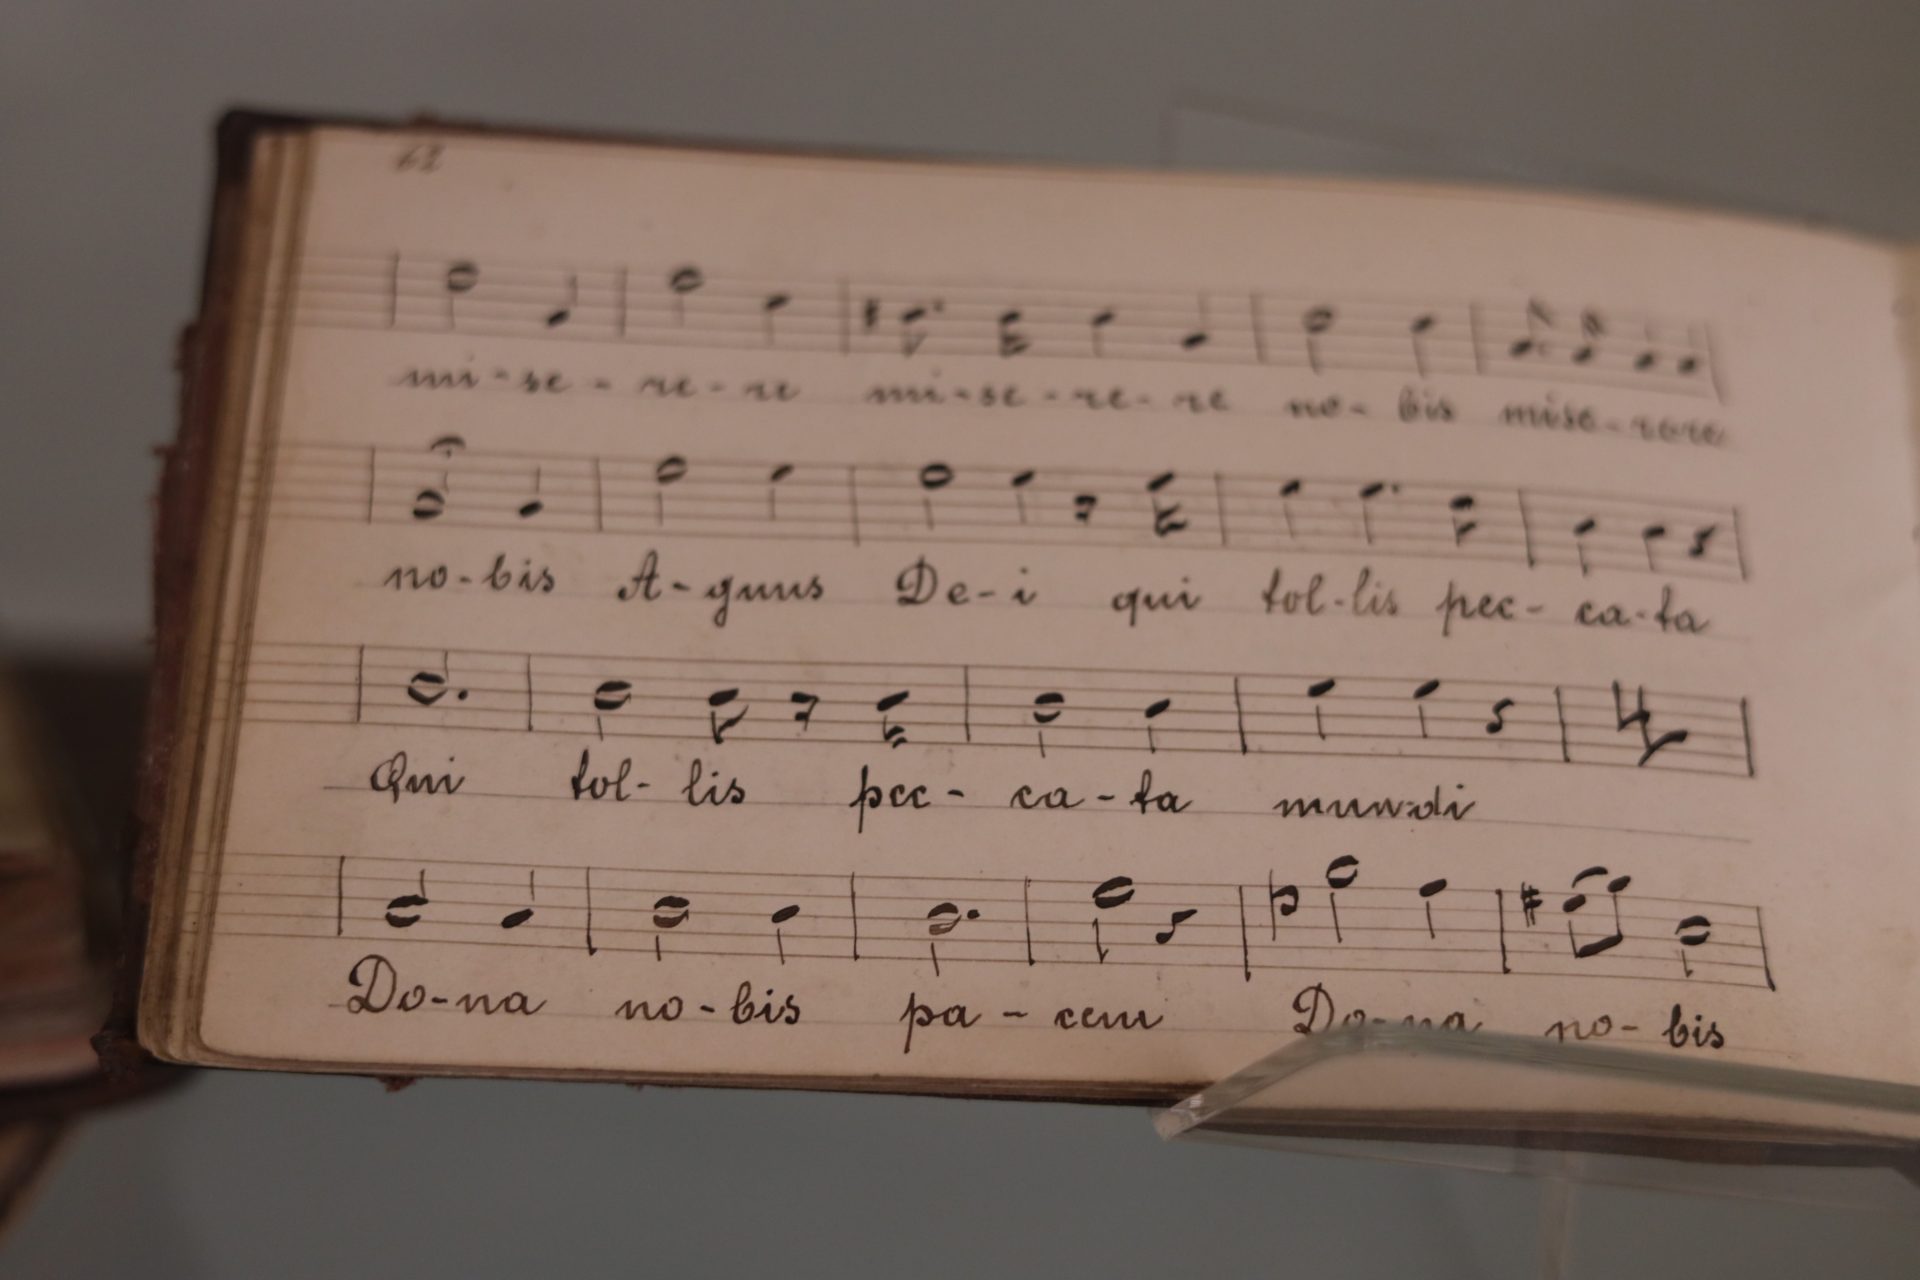 62
mi-se-re-re mi-se-re-re no-bis mise-rere
no-bis A-gnus De-i qui tol-lis pec-ca-ta
Qui tol-lis pec-ca-ta mun-di
Do-na no-bis pa-cem Do-na no-bis